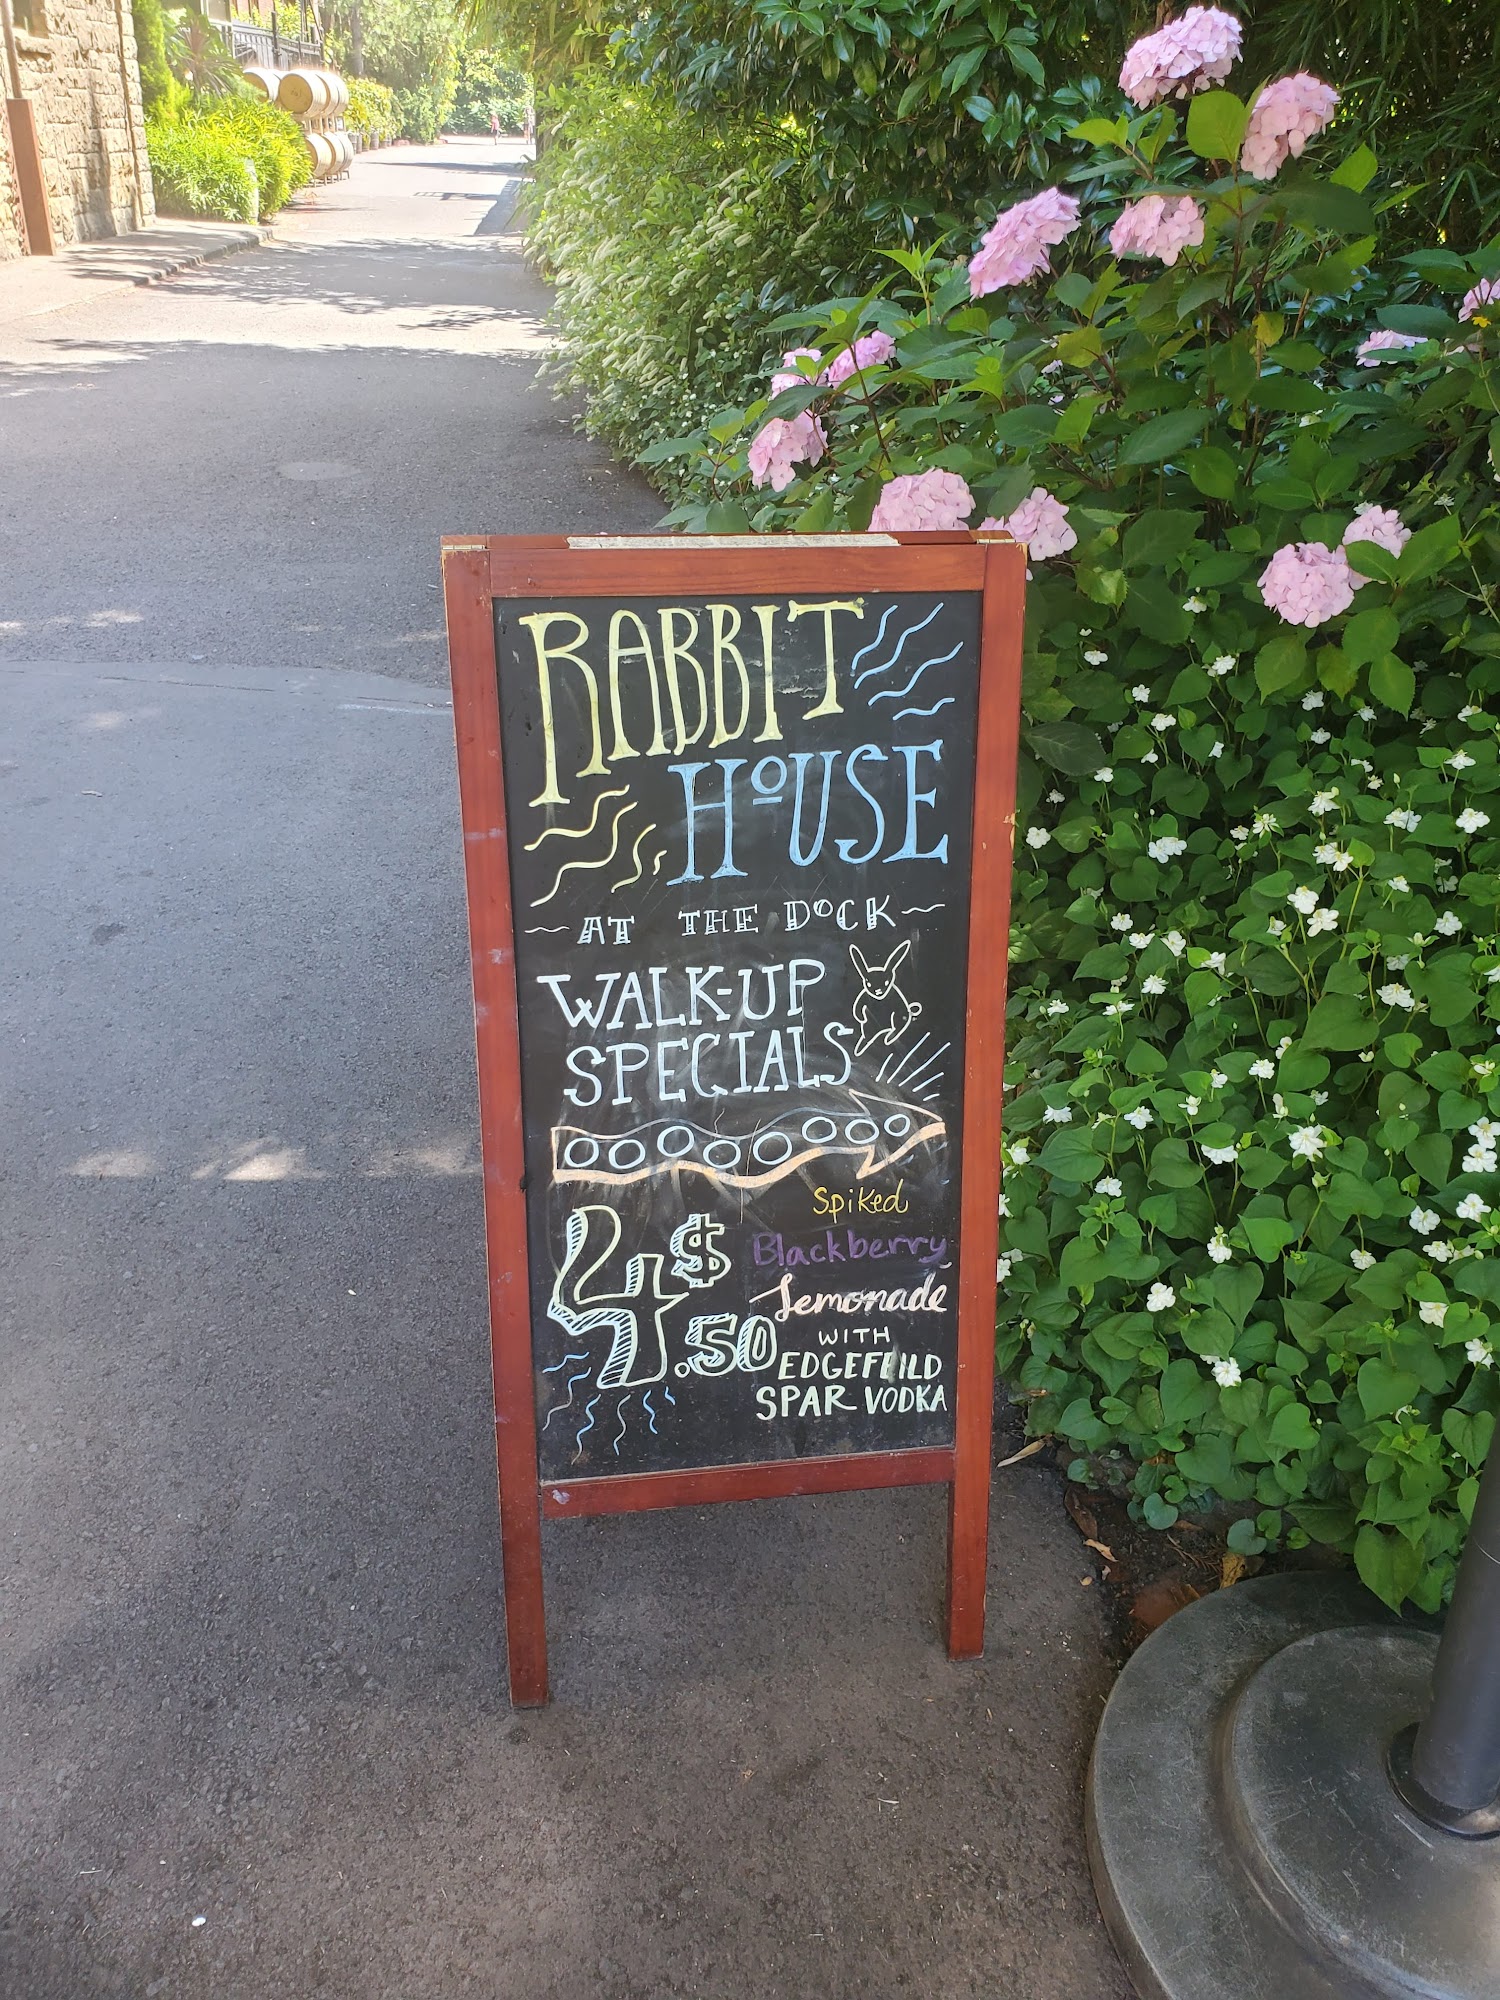 RABBIT
HOUSE
AT THE DOCK
WALK-UP
SPECIALS
$4.50
Spiked
Blackberry
Lemonade
WITH
EDGEFEILD
SPAR VODKA